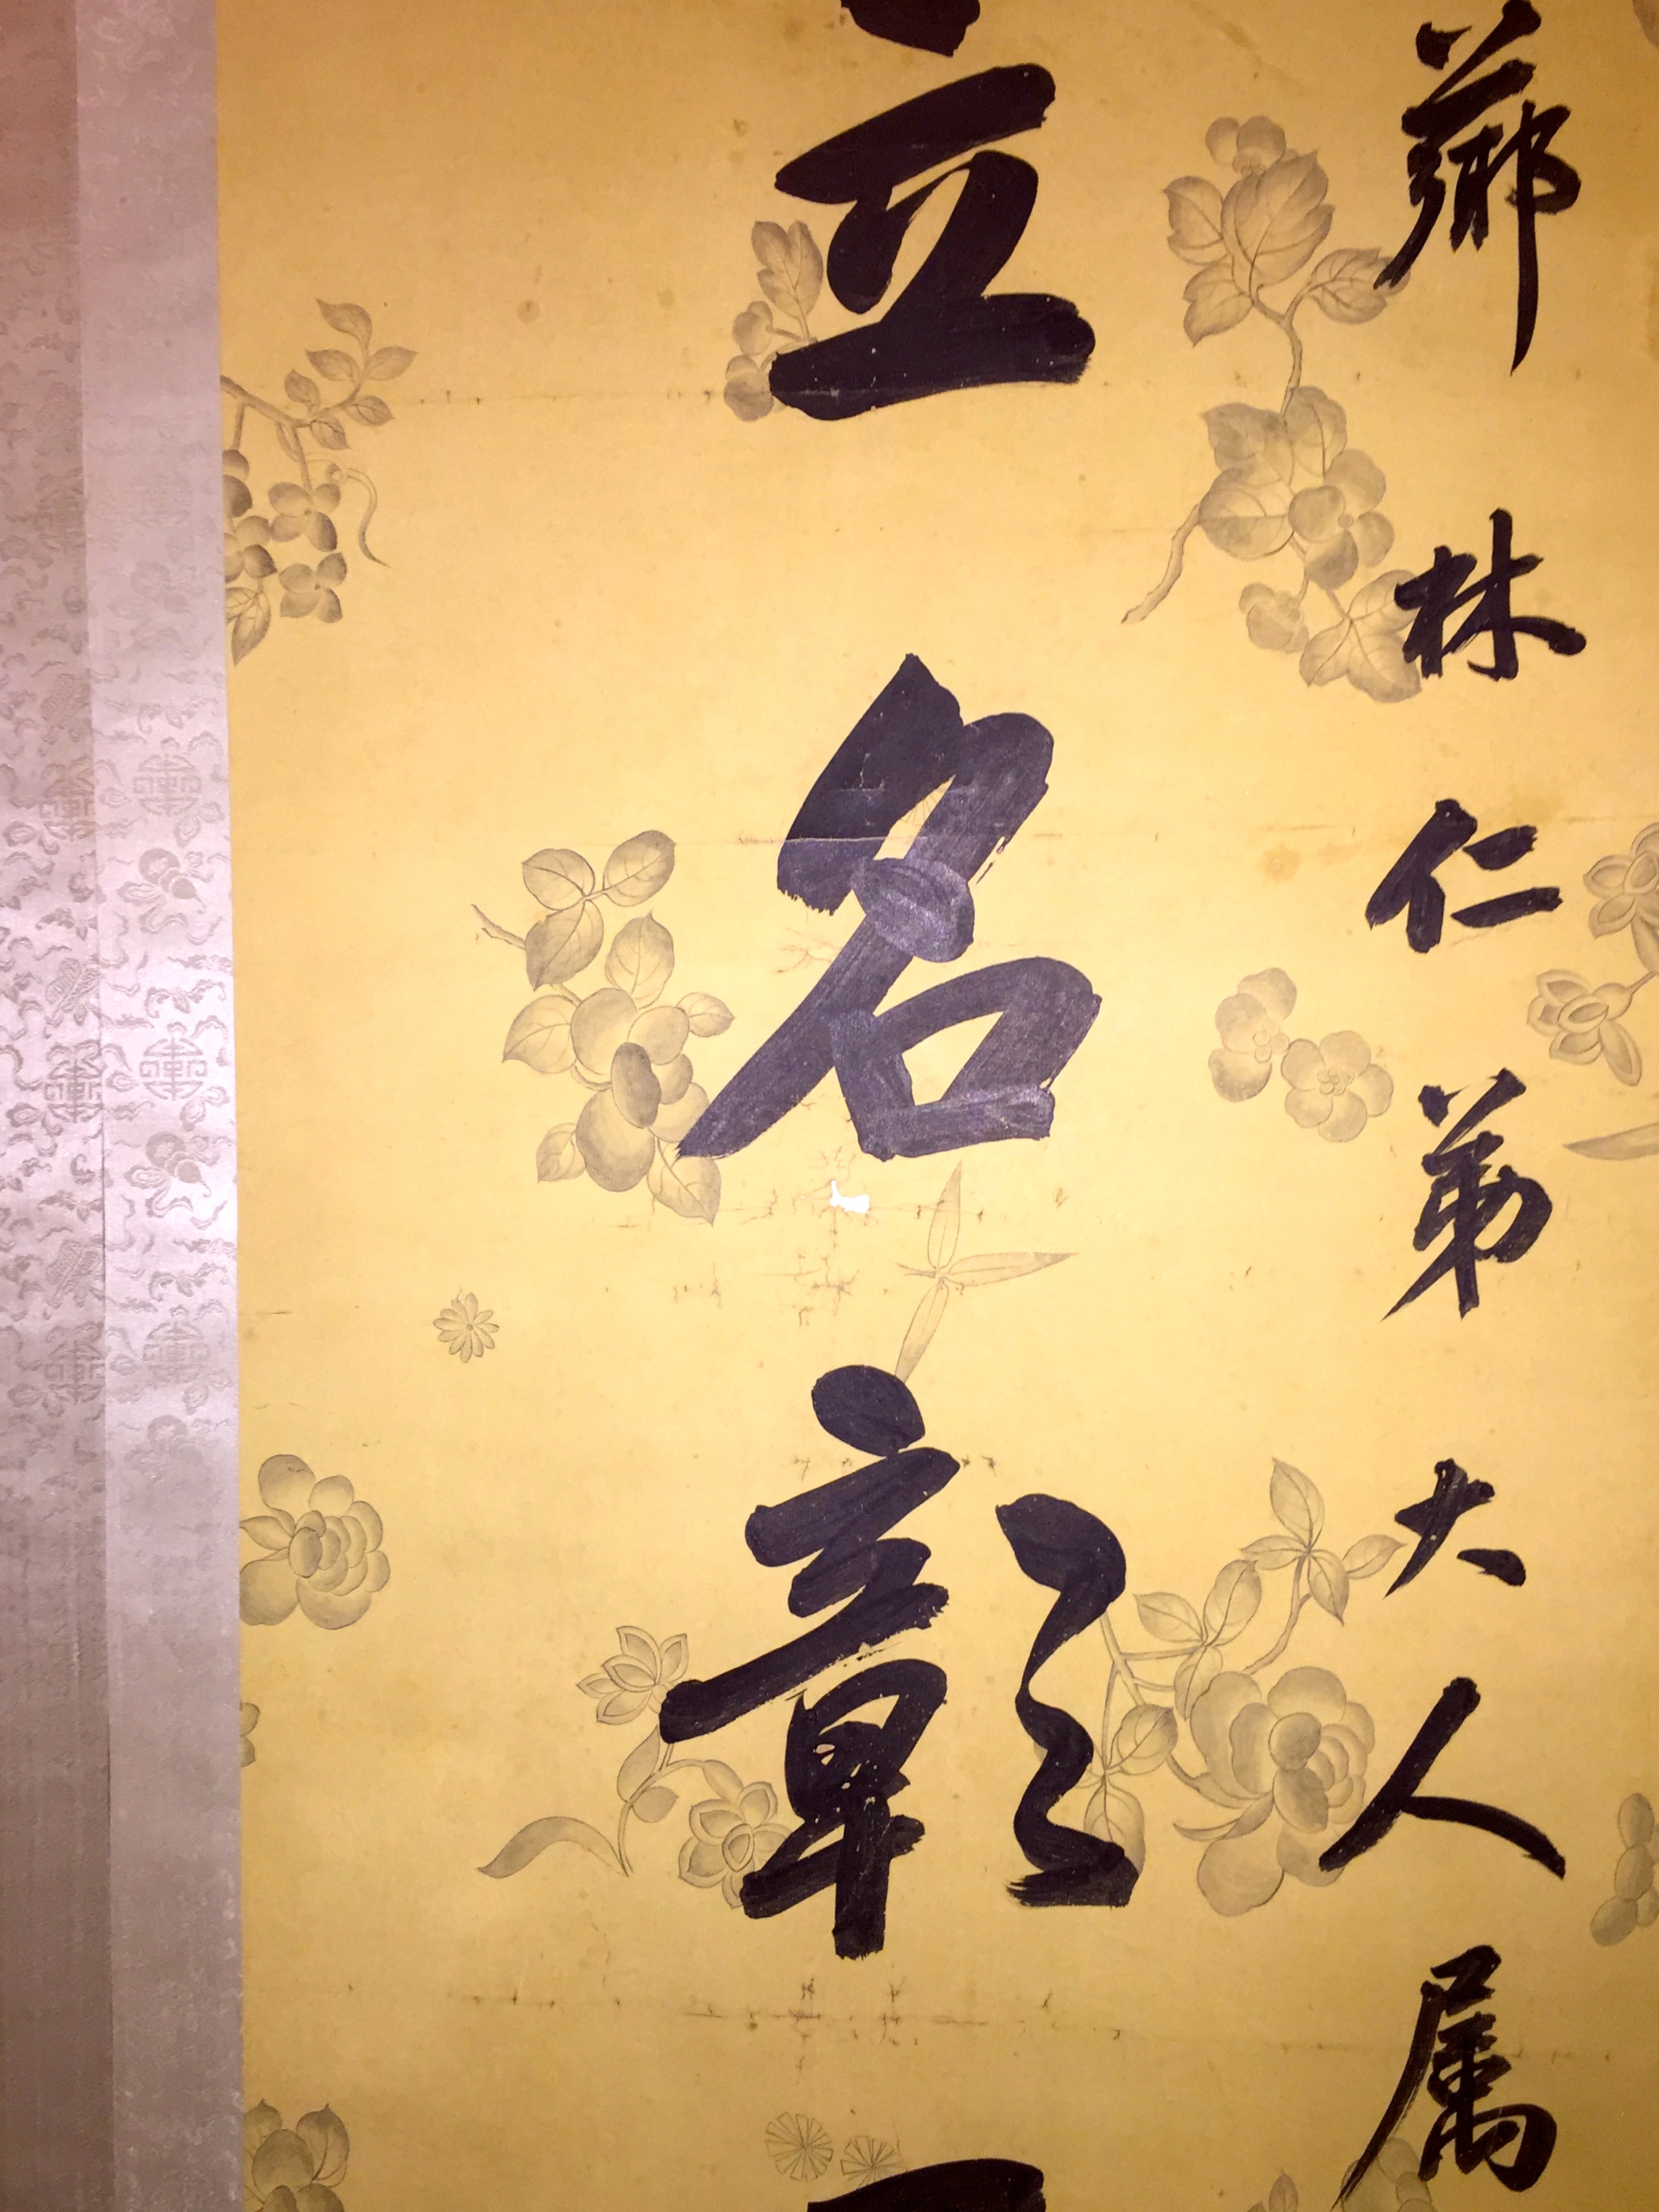 薌林仁弟大人属
立名彰